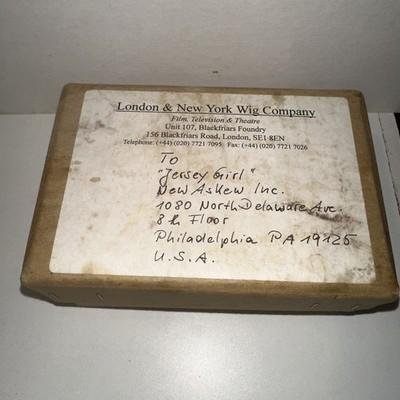 London & New York Wig Company
Film, Television & Theatre
Unit 107, Blackfriars Foundry
156 Blackfriars Road, London, SE1 8EN
Telephone: (+44) (020) 7721 7095 Fax: (+44) (020) 7721 7026
To
"Jersey Girl"
New Askew Inc.
1080 North Delaware Ave.
8th Floor
Philadelphia PA 19125
U.S.A.